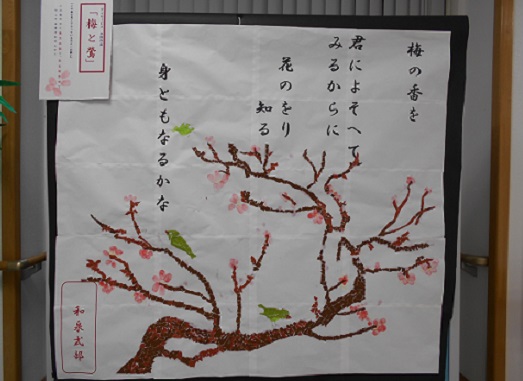 梅の香を
君によそへて
みるからに
花のをり
知る
身ともなるかな
和泉式部
「梅と鶯」